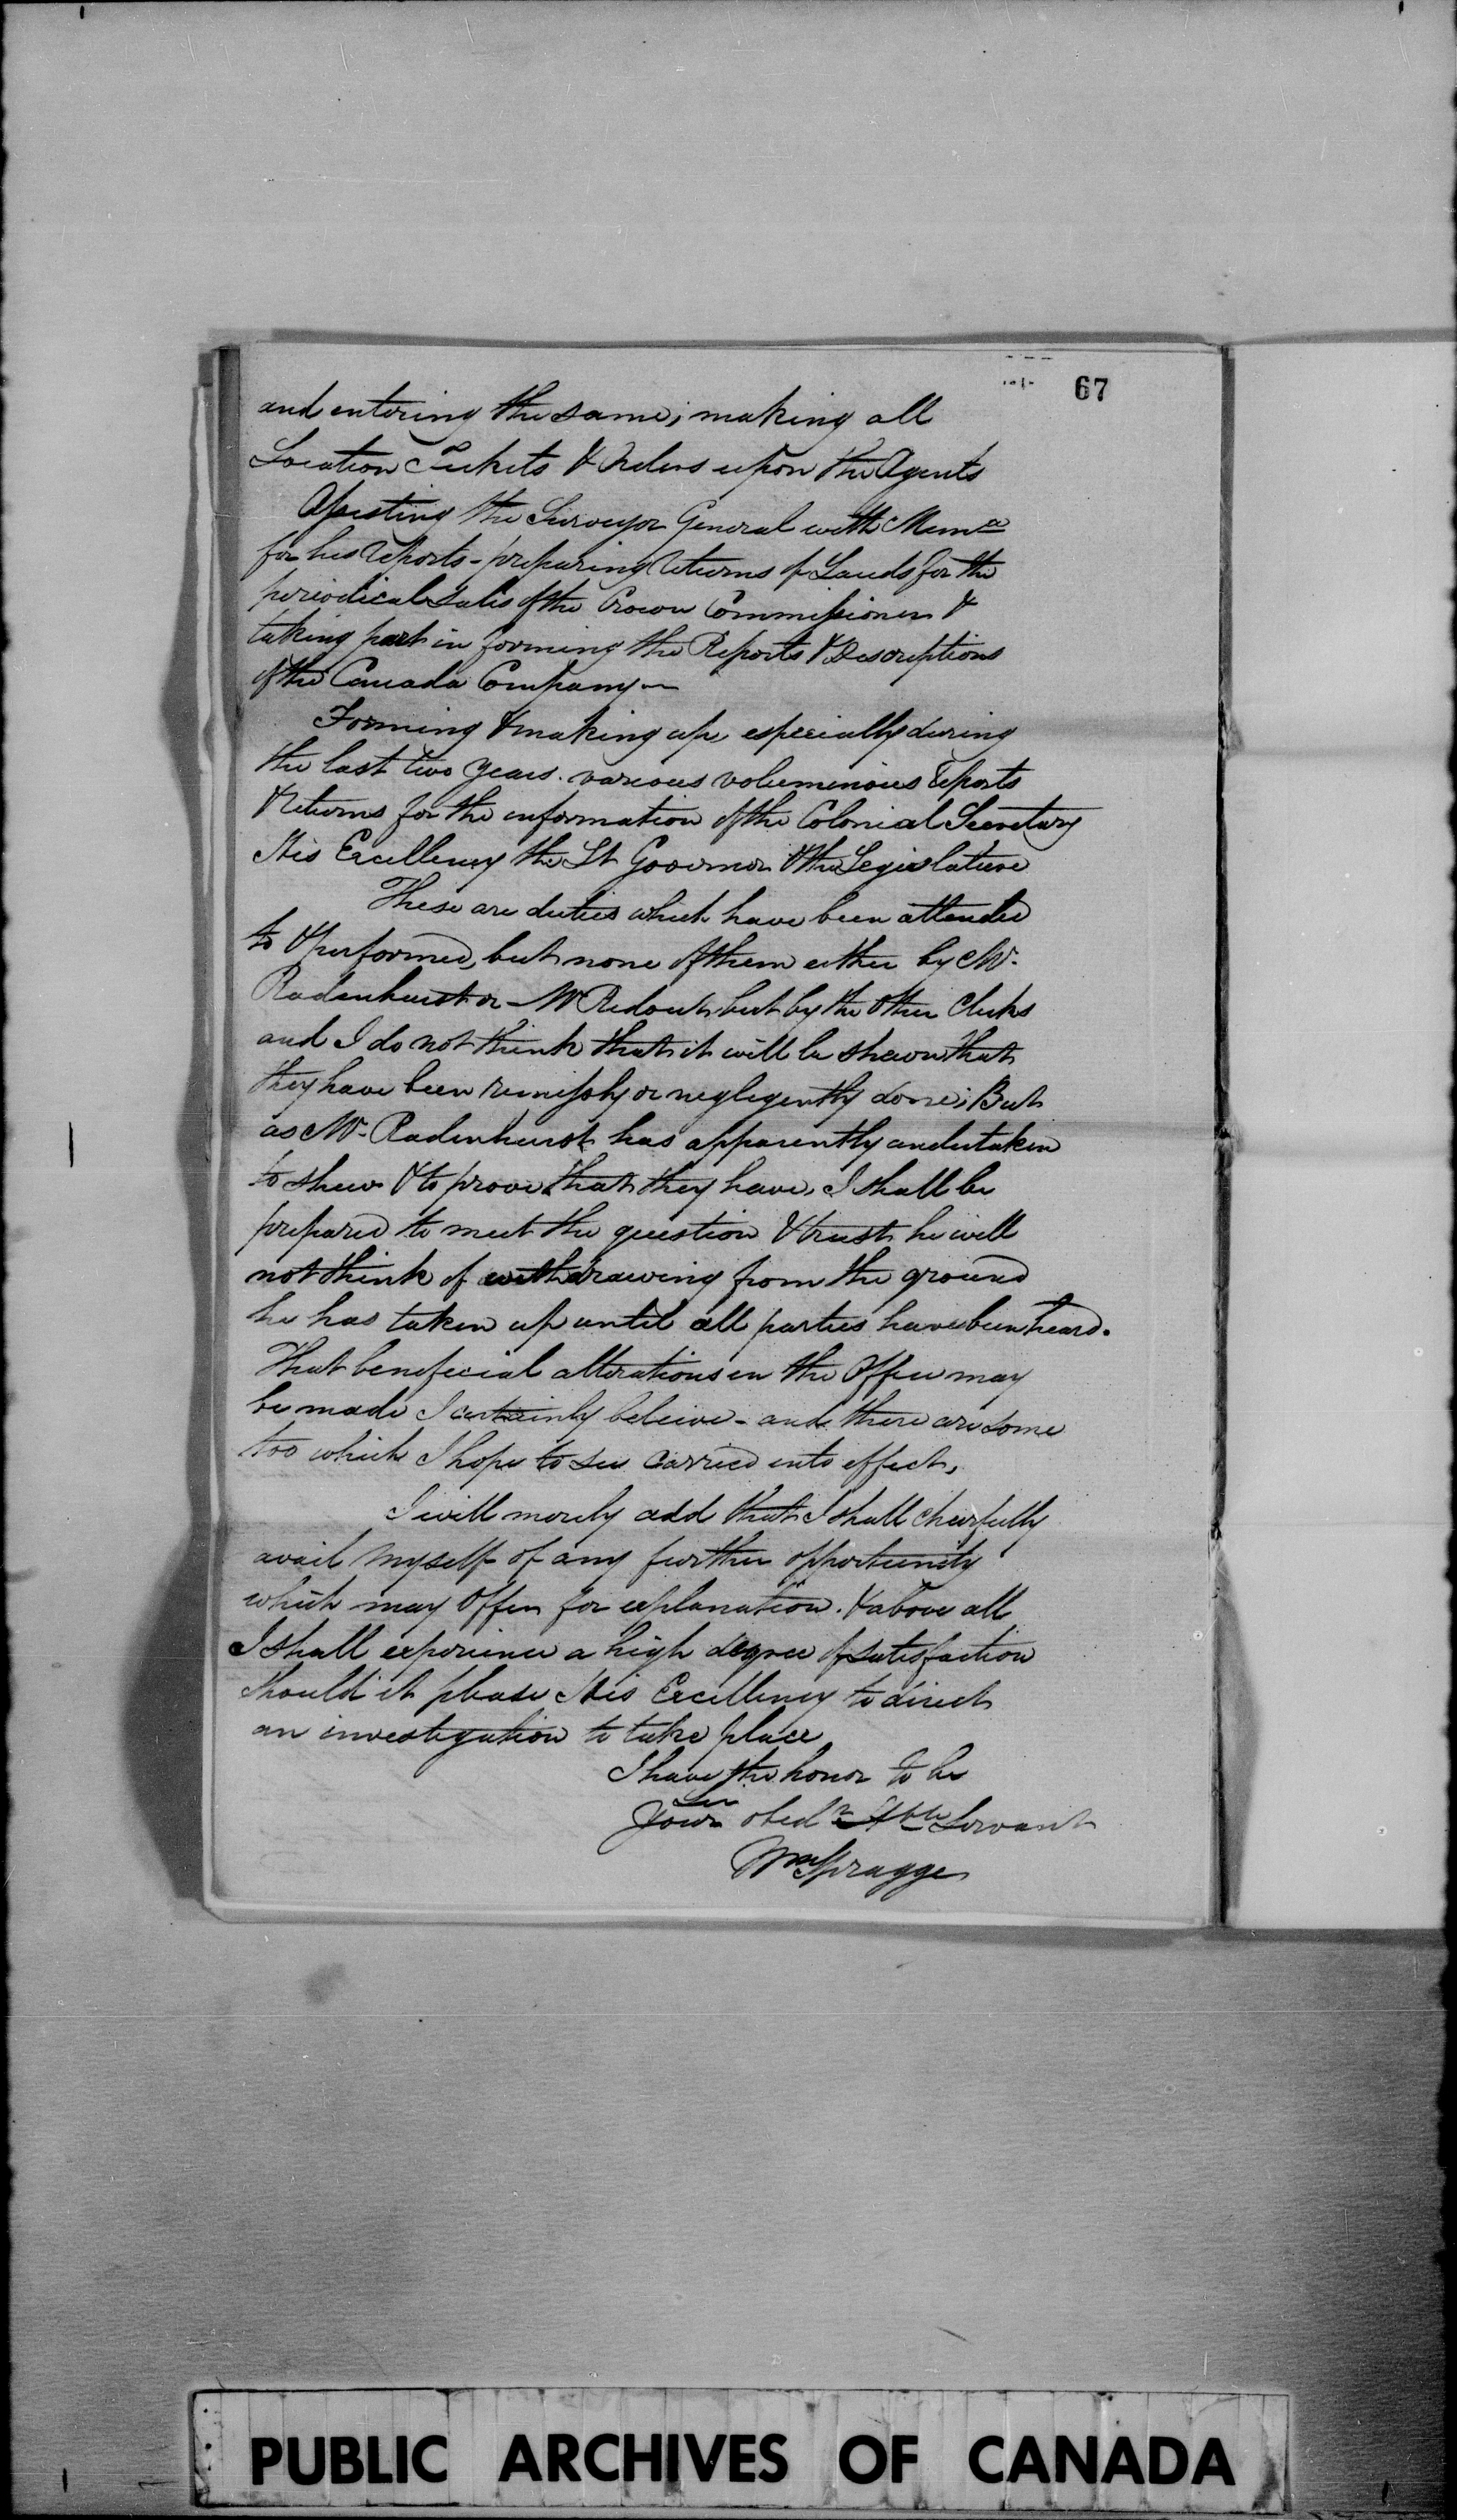 67
and entering the same; making all
Location Tickets & Orders upon the Agents
Assisting the Surveyor General with Mema
for his Reports - preparing Returns of Lands for the
periodical sales of the Crown Commissioner &
taking part in forming the Reports & Descriptions
of the Canada Company -
Forming & making up, especially during
the last two years. various voluminous Reports
& Returns for the information of the Colonial Secretary
His Excellency the Lt Governor & the Legislature
These are duties which have been attended
to & performed, but none of them either by Mr.
Radenhurst or Mr Ridout, but by the other Clerks
and I do not think that it will be shewn that
they have been remissly or negligently done; But
as Mr. Radenhurst has apparently undertaken
to shew & to prove that they have, I shall be
prepared to meet the question & trust he will
not think of withdrawing from the ground
he has taken up until all parties have been heard.
That beneficial alterations in the Office may
be made I certainly beleive - and there are some
too which I hope to see carried into effect,
I will merely add that I shall chearfully
avail myself of any further opportunity
which may offer for explanation. & above all
I shall experience a high degree of satisfaction
should it please His Excellency to direct
an investigation to take place
I have the honor to be
Sir
Your obedt Hble Servant
Wm Spragge
PUBLIC ARCHIVES OF CANADA